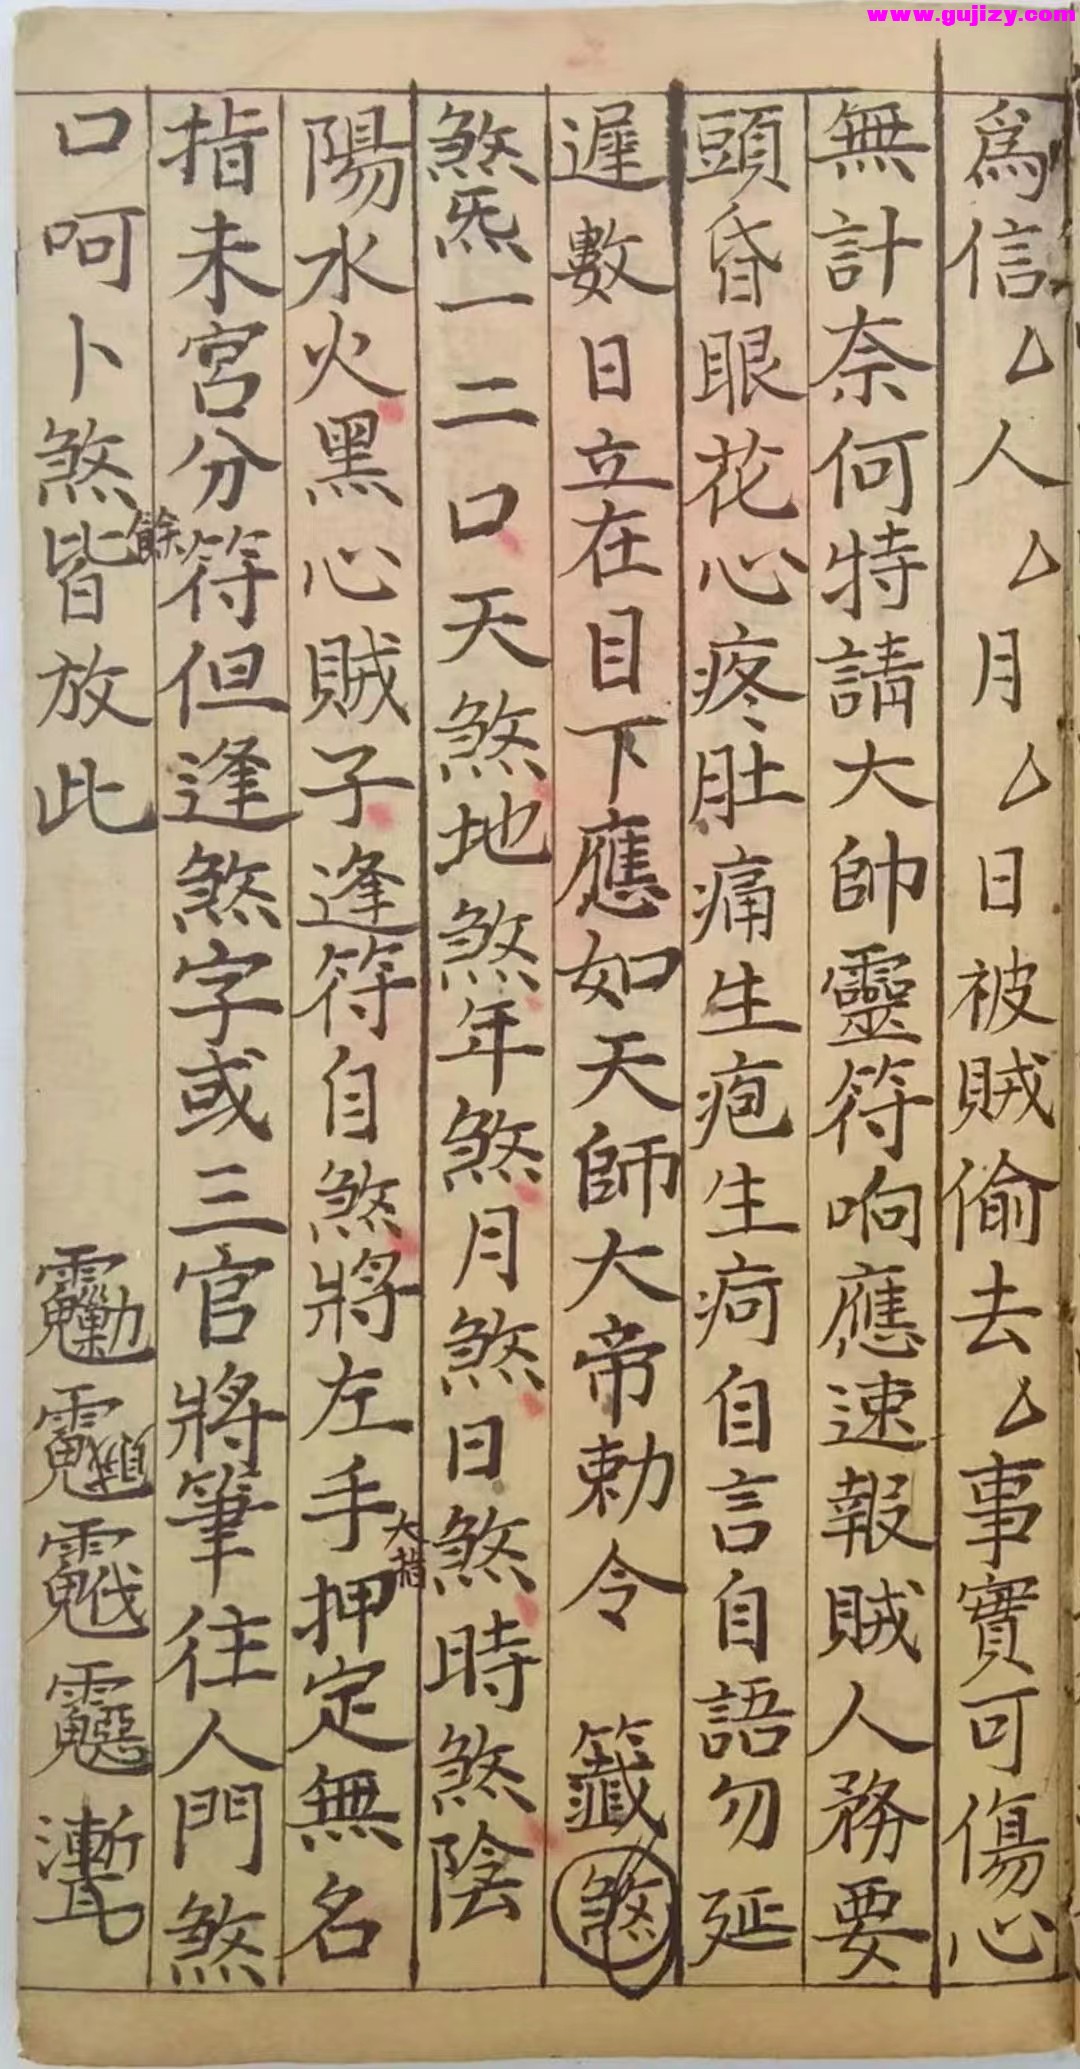 www.gujizy.com
為信厶人厶月厶日被賊偷去厶事實可傷心
無計奈何特請大帥靈符响應速報賊人務要
頭昏眼花心疼肚痛生疱生疴自言自語勿延
遲數日立在目下應如天師大帝勅令 籤煞
煞炁一二口天煞地煞年煞月煞日煞時煞陰
陽水火黑心賊子逢符自煞將左手大指押定無名
指未宮分符但逢煞字或三官將筆往人門煞
口呵卜煞餘皆放此